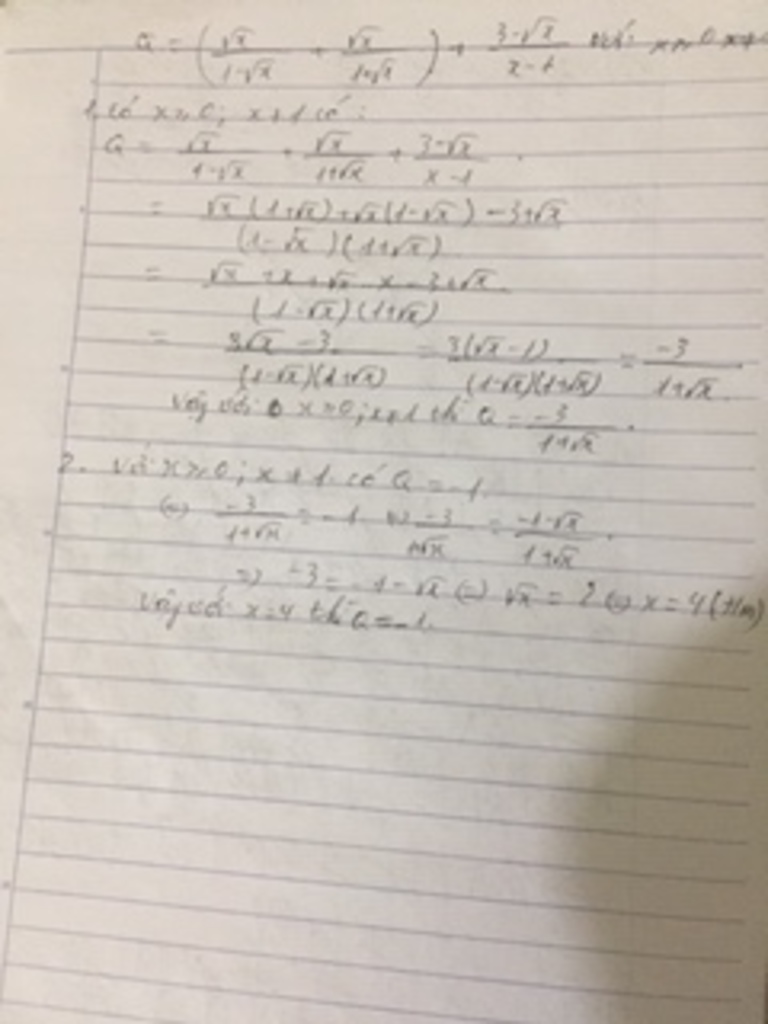 Q = (√x/(1-√x) + √x/(1+√x)) + (3-√x)/(x-1) với x≥0
1. Có x≥0; x≠1 có:
Q = √x/(1-√x) + √x/(1+√x) + (3-√x)/(x-1).
= (√x(1+√x)+√x(1-√x)-3+√x)/((1-√x)(1+√x))
= (√x+x+√x-x-3+√x)/((1-√x)(1+√x))
= (3√x-3)/((1-√x)(1+√x)) = 3(√x-1)/((1-√x)(1+√x)) = -3/(1+√x).
Vậy với x≥0; x≠1 thì Q = -3/(1+√x).
2. Với x≥0; x≠1 có Q = -1
(=) -3/(1+√x) = -1 (=) -3/(1+√x) = (-1-√x)/(1+√x).
=) -3 = -1-√x (=) √x = 2 (=) x = 4 (t/m)
Vậy với x=4 thì Q=-1.